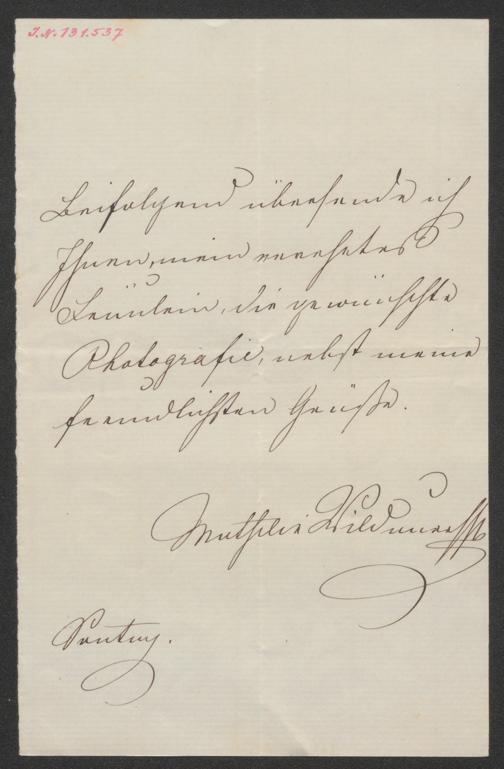 J.N. 131.537
Beifolgend übersende ich
Ihnen, mein verehrtes
Fräulein, die gewünschte
Photografie, nebst meine
freundlichsten Grüße.
Mathilde Wildauer
Sontag.